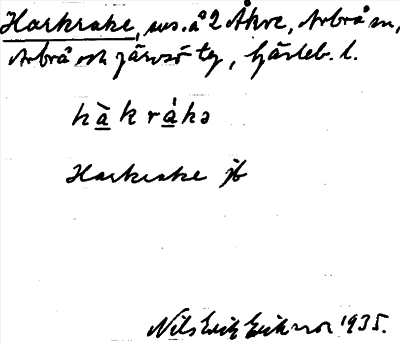 Harkrake, us. å 2 Åkre, Arbrå sn,
Arbrå och Järvsö tg, Gävleb. l.
hàkrákə
Harkrake jb
Nils Erik Eriksson 1935.